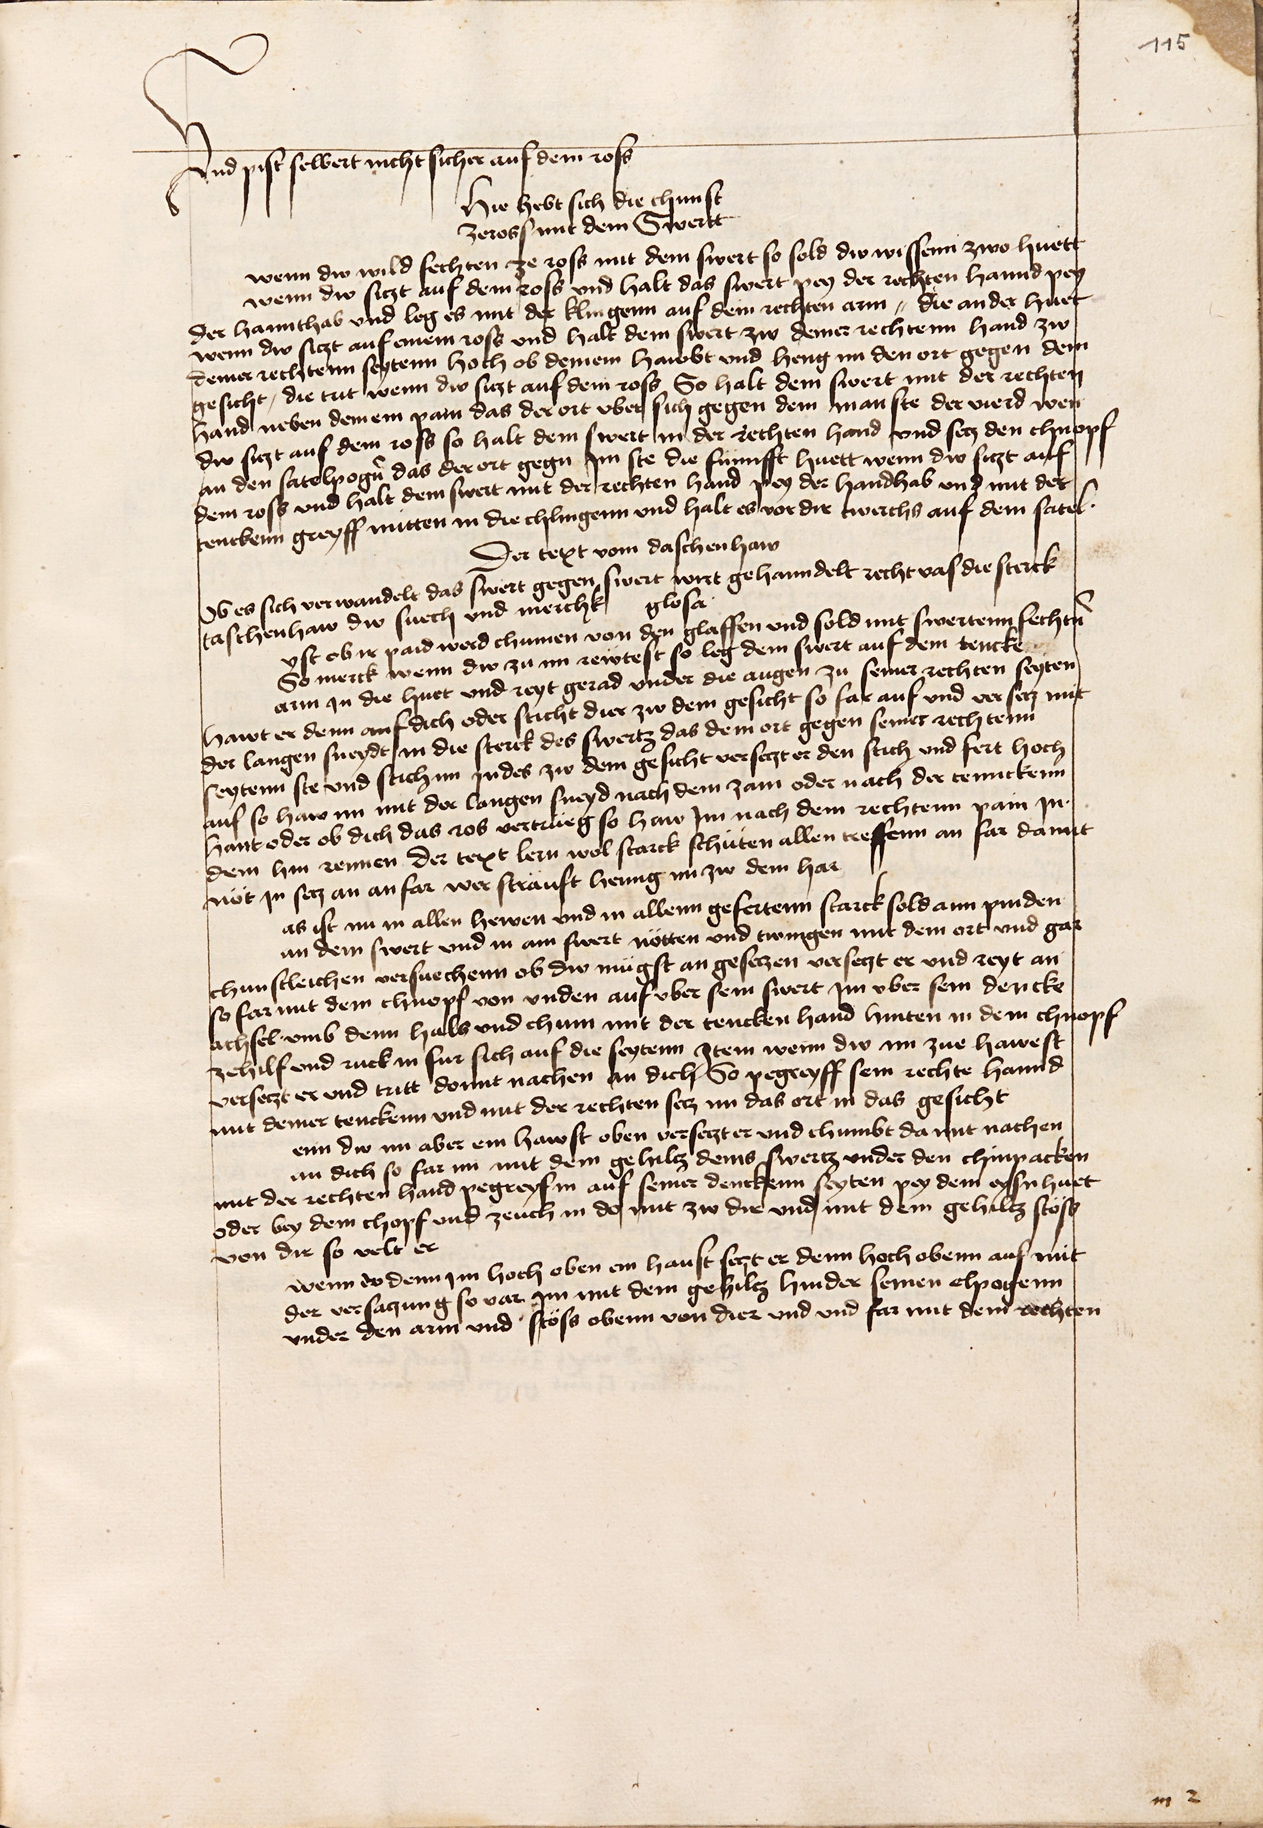 115
Vnd pist selbert nicht sicher auf dem ross
Hie hebt sich die chunst
zeross mit dem Swertt
wenn dw wild fechten ze ross mit dem swert so sold dw wissenn zwo huett
wenn dw siczt auf dem ross vnd halt das swert pey der rechten hannd pey
der hannthab vnd leg es mit der klingenn auf dein rechten arm // die ander huet
wenn dw siczt auf einem ross vnd halt dein swert zw deiner rechtenn hand zw
deiner rechtenn seytenn hoch ob deinem hawbt vnd heng im den ort gegen dem
gesicht / die trit wenn dw siczt auf dem ross So halt dein swert mit der rechten
hand neben deinem pain das der ort vber sich gegen dem man ste der vierd wen
dw siczt auf dem ross so halt dein swert in der rechten hand vnd secz den chnopf
an den satelpogn̄ das der ort gegn im ste die fünnfft huett wenn dw siczt auf
dem ross vnd halt dein swert mit der rechten hand pey der handhab vnd mit der
tenckenn greyff mitten in die chlingenn vnd halt es vor dir twerchs auf dem satel
Der text vom daschenhaw
Ob es sich verwandelt das swert gegen swert wirt gehanndelt recht vas die sterck
taschenhaw dw suech vnd merchk glosa
yst ob ir paid werd chumen von den gleffen vnd sold mit swertenn fechtn̄
So merck wenn dw zu im rewtest so leg dein swert auf dein tencke
arm in die huet vnd reyt gerad vnder die augen zu seiner rechten seyten
hawt er denn auf dich oder sticht dier zw dem gesicht so far auf vnd versecz mit
der langen sneydt in die sterck des swertz das dein ort gegen seiner rechtenn
seytenn ste vnd stich im indes zw dem gesicht verseczt er den stich vnd fert hoch
auf so haw im mit der langen sneyd nach dem zam oder nach der tennckenn
hant oder ob dich das ros vertrueg so haw im nach dem rechtenn pain in
dem hin rennen Der text lern wol starck schüten allen treffenn an far damit
nöt in secz an anfar wer sträuft henng im zw dem har
as ist nu in allen hewen vnd in allenn gefertenn starck sold ann pinden
an dem swert vnd in am swert nötten vnd twingen mit dem ort vnd gar
chunstleichen versuechenn ob dw mügst an geseczen verseczt er vnd reyt an
so far mit dem chnopf von vnden auf vber sein swert im vber sein dencke
achsel vmb denn hals vnd chum mit der tencken hand hinten in dem chnopf
zehilf vnd ruck in fur sich auf die seytenn Item wenn dw im zue hawest
verseczt er vnd tritt domit nachen an dich So pegreyff sein rechte hannd
mit deiner tenckenn vnd mit der rechten secz im das ort in das gesicht
enn dw im aber ein hawst oben verseczt er vnd chumbt da mit nachen
an dich so far im mit dem gehilcz deins swertz vnder den chinpacken
mit der rechten hand pegreyf in auf seiner denckenn seyten pey dem eysnhuet
oder bey dem chopf vnd zeuch in do mit zw dir vnd mit dem gehilcz stöss
von dir so velt er
wenn dw denn im hoch oben ein haust seczt er denn hoch obenn auf mit
der versaczung so var im mit dem gehilcz hinder seinen elpogenn
vnder den arm vnd stöss obenn von dier vnd vnd far mit dem rechten
m 2